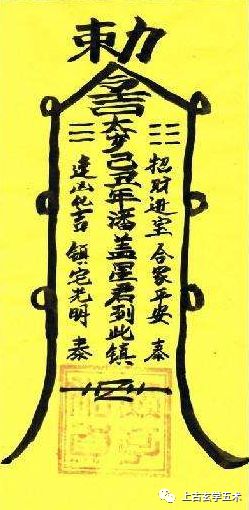 勅
太岁己丑年潘盖星君到此镇
招财进宝合家平安 泰
逢凶化吉 镇宅光明 泰
上古玄学五术